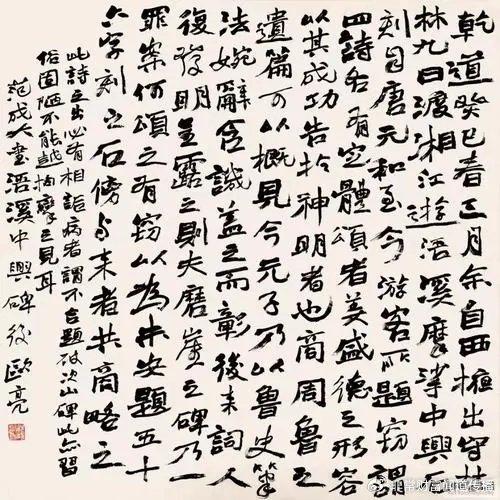 乾道癸巳春三月余自西掖出守桂
林九日渡湘江遊浯溪摩挲中興石
刻洎唐元和至今游客所題竊謂
四詩各有定體頌者美盛德之形容
以其成功告於神明者也商周魯之
遺篇可以概見今元子乃以魯史筆
法婉辭含譏蓋之而彰後来詞人
復發明呈露之則夫磨崖之碑乃一
罪案何頌之有竊以為未安題五十
六字刻之石傍与来者共商略之
此詩之出必有相詬病者謂不合題破次山碑此亦習
俗固陋不能越拘攣之見耳
范成大書浯溪中興碑後 歐亮
@非常财富 道传播